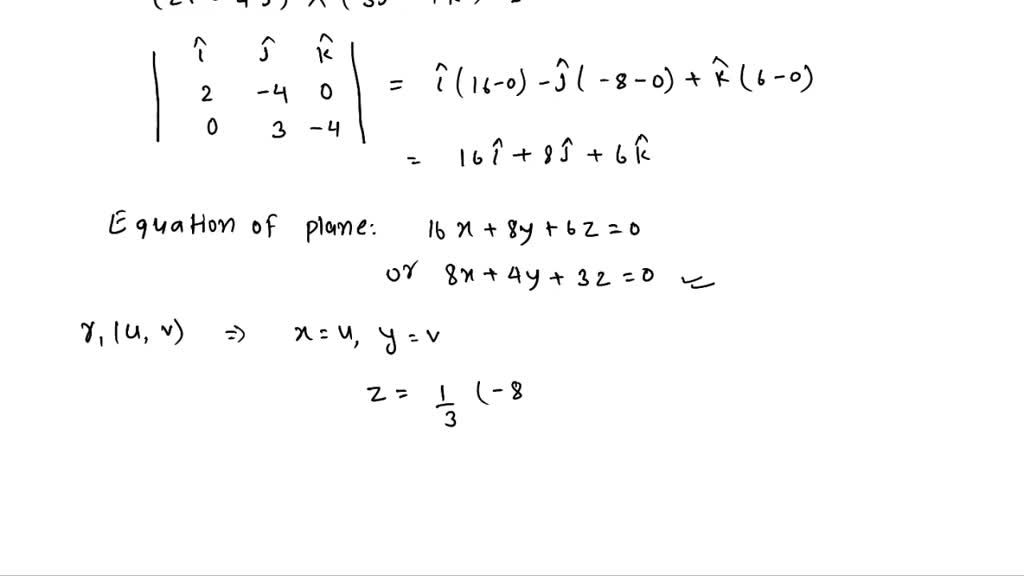 î ĵ k̂
2 -4 0 = î(16-0) - ĵ(-8-0) + k̂(6-0)
0 3 -4
= 16î + 8ĵ + 6k̂
Equation of plane: 16x + 8y + 6z = 0
or 8x + 4y + 3z = 0
r, (u, v) ⇒ x = u, y = v
z = 1/3 (-8